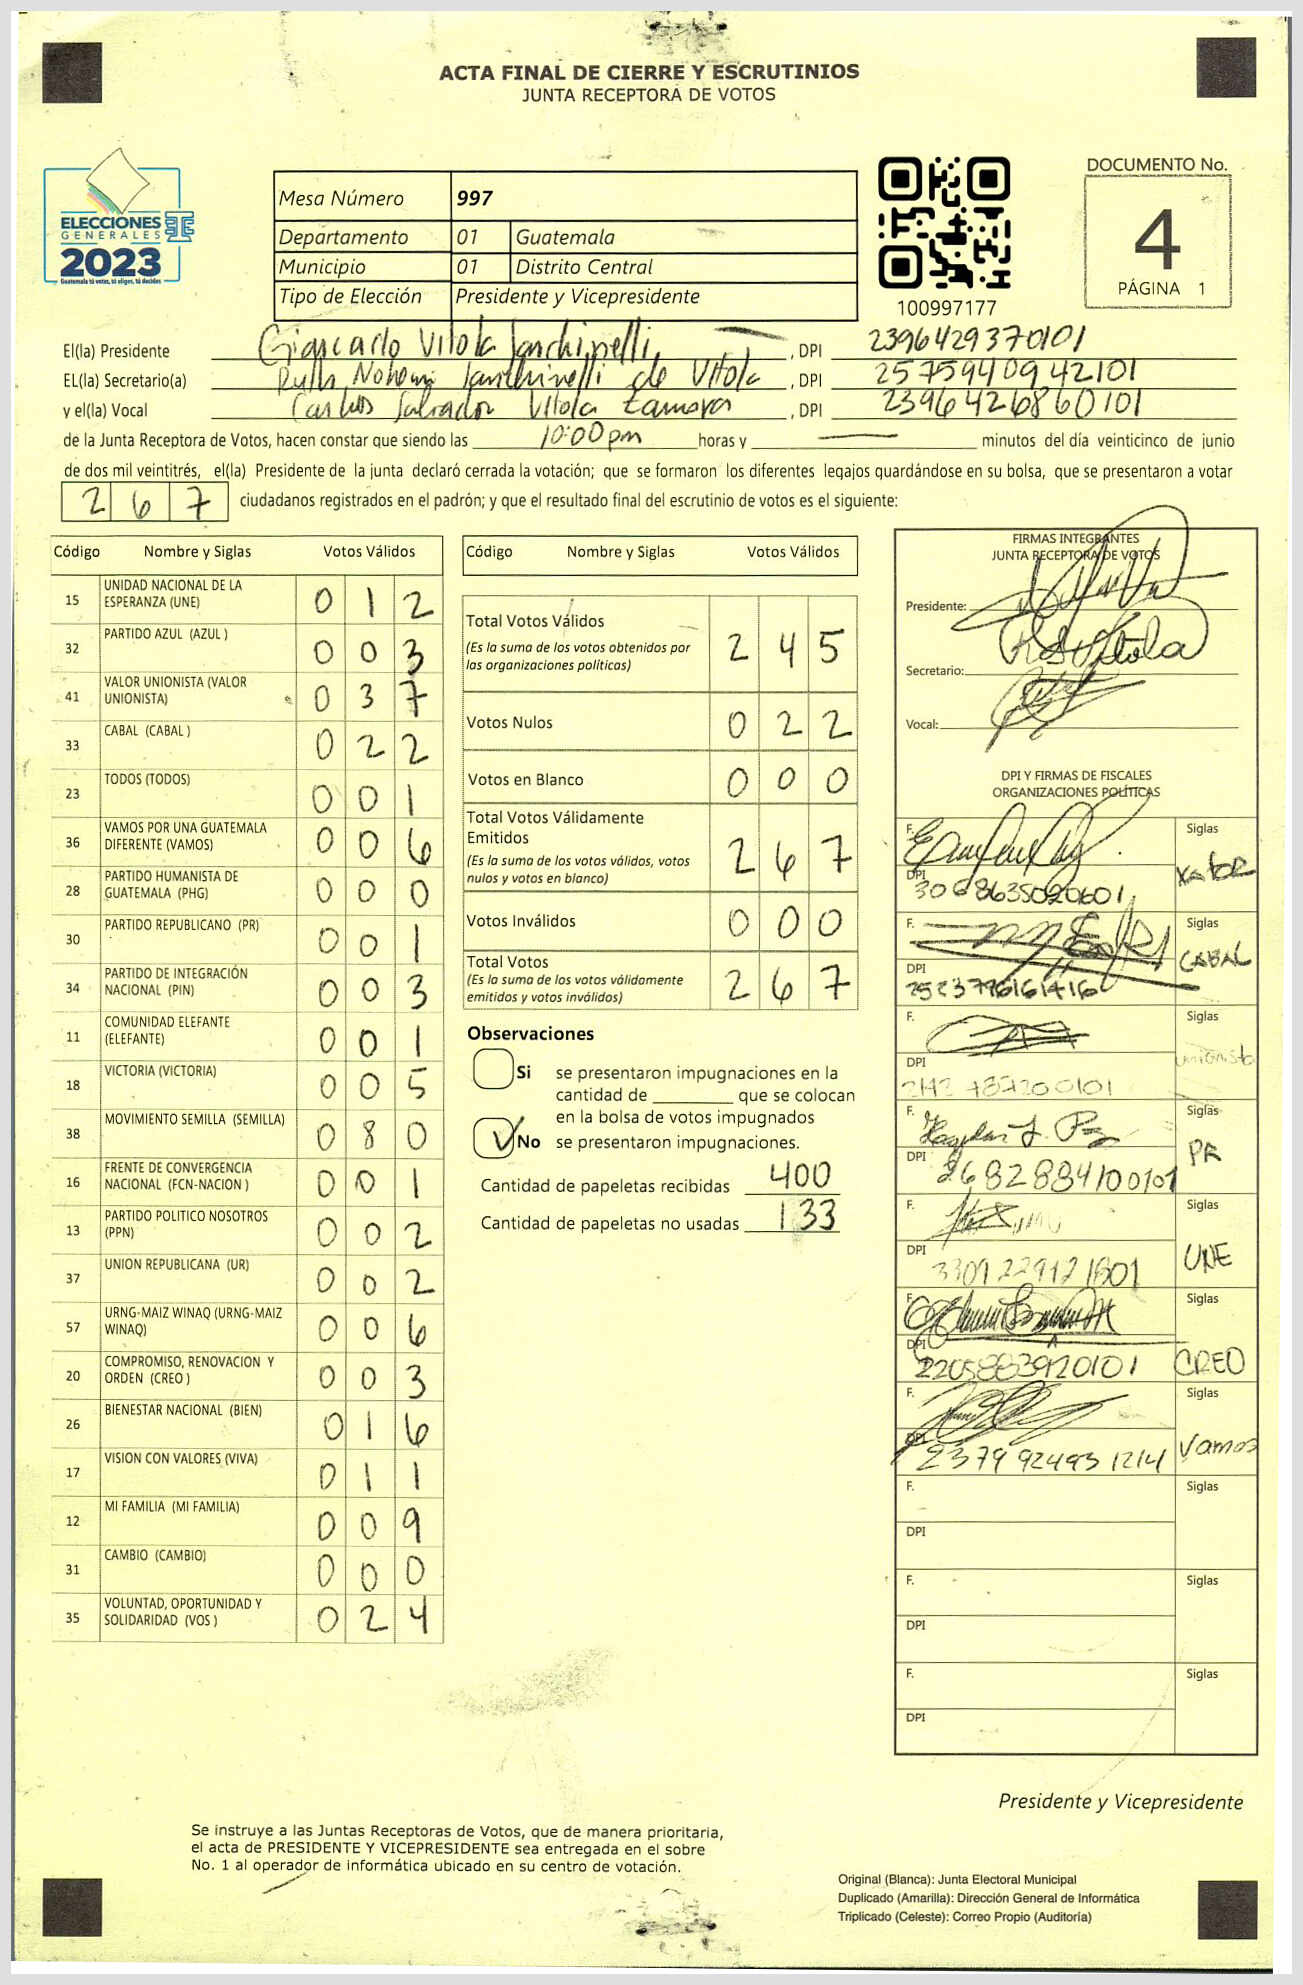 ACTA FINAL DE CIERRE Y ESCRUTINIOS
JUNTA RECEPTORA DE VOTOS
ELECCIONES
GENERALES
2023
Guatemala tú votas, tú eliges, tú decides
Mesa Número 997
Departamento 01 Guatemala
Municipio 01 Distrito Central
Tipo de Elección Presidente y Vicepresidente
100997177
DOCUMENTO No.
4
PÁGINA 1
El(la) Presidente Giancarlo Vitola Ianchinelli, DPI 2396429370101
EL(la) Secretario(a) Ruth Nohemi Ianchinelli de Vitola, DPI 2575940942101
y el(la) Vocal Carlos Salvador Vitola Zamora, DPI 2396426860101
de la Junta Receptora de Votos, hacen constar que siendo las 10:00pm horas y — minutos del día veinticinco de junio
de dos mil veintitrés, el(la) Presidente de la junta declaró cerrada la votación; que se formaron los diferentes legajos guardándose en su bolsa, que se presentaron a votar
267 ciudadanos registrados en el padrón; y que el resultado final del escrutinio de votos es el siguiente:
Código Nombre y Siglas Votos Válidos
15 UNIDAD NACIONAL DE LA ESPERANZA (UNE) 012
32 PARTIDO AZUL (AZUL ) 003
41 VALOR UNIONISTA (VALOR UNIONISTA) 037
33 CABAL (CABAL ) 022
23 TODOS (TODOS) 001
36 VAMOS POR UNA GUATEMALA DIFERENTE (VAMOS) 006
28 PARTIDO HUMANISTA DE GUATEMALA (PHG) 000
30 PARTIDO REPUBLICANO (PR) 001
34 PARTIDO DE INTEGRACIÓN NACIONAL (PIN) 003
11 COMUNIDAD ELEFANTE (ELEFANTE) 001
18 VICTORIA (VICTORIA) 005
38 MOVIMIENTO SEMILLA (SEMILLA) 080
16 FRENTE DE CONVERGENCIA NACIONAL (FCN-NACION ) 001
13 PARTIDO POLITICO NOSOTROS (PPN) 002
37 UNION REPUBLICANA (UR) 002
57 URNG-MAIZ WINAQ (URNG-MAIZ WINAQ) 006
20 COMPROMISO, RENOVACION Y ORDEN (CREO ) 003
26 BIENESTAR NACIONAL (BIEN) 016
17 VISION CON VALORES (VIVA) 011
12 MI FAMILIA (MI FAMILIA) 009
31 CAMBIO (CAMBIO) 000
35 VOLUNTAD, OPORTUNIDAD Y SOLIDARIDAD (VOS ) 024
Código Nombre y Siglas Votos Válidos
Total Votos Válidos 245
(Es la suma de los votos obtenidos por
las organizaciones políticas)
Votos Nulos 022
Votos en Blanco 000
Total Votos Válidamente
Emitidos 267
(Es la suma de los votos válidos, votos
nulos y votos en blanco)
Votos Inválidos 000
Total Votos 267
(Es la suma de los votos válidamente
emitidos y votos inválidos)
Observaciones
Si se presentaron impugnaciones en la
cantidad de ________ que se colocan
en la bolsa de votos impugnados
No se presentaron impugnaciones.
Cantidad de papeletas recibidas 400
Cantidad de papeletas no usadas 133
FIRMAS INTEGRANTES
JUNTA RECEPTORA DE VOTOS
Presidente:
Secretario:
Vocal:
DPI Y FIRMAS DE FISCALES
ORGANIZACIONES POLÍTICAS
F. Siglas
DPI 3068635020601 Valor
F. Siglas
DPI CABAL
F. Siglas
DPI unionista
F. Siglas
DPI 2682884100101 PR
F. Siglas
DPI 3301229121801 UNE
F. Siglas
DPI 2205883920101 CREO
F. Siglas
DPI 2379924931214 Vamos
F. Siglas
DPI
F. Siglas
DPI
F. Siglas
DPI
Presidente y Vicepresidente
Se instruye a las Juntas Receptoras de Votos, que de manera prioritaria,
el acta de PRESIDENTE Y VICEPRESIDENTE sea entregada en el sobre
No. 1 al operador de informática ubicado en su centro de votación.
Original (Blanca): Junta Electoral Municipal
Duplicado (Amarilla): Dirección General de Informática
Triplicado (Celeste): Correo Propio (Auditoría)